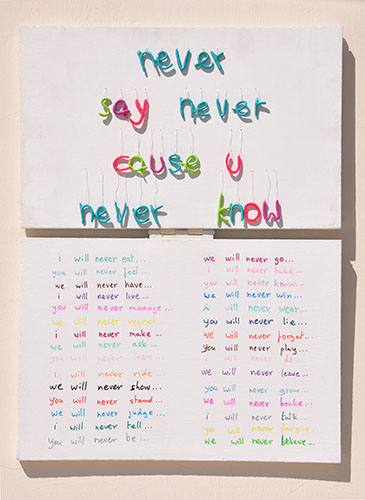 never
say never
cause u
never know
i will never eat...
you will never feel...
we will never have...
i will never live...
you will never manage...
we will never regret...
i will never make...
we will never ask...
you will never leave...
i will never ride...
we will never show...
you will never stand...
we will never judge...
i will never tell...
you will never be...
we will never go...
i will never take...
you will never know...
we will never win...
i will never wear...
you will never lie...
we will never forget...
you will never play...
i will never do
we will never leave...
you will never grow...
we will never brake...
i will never talk...
you will never forgive...
we will never believe...